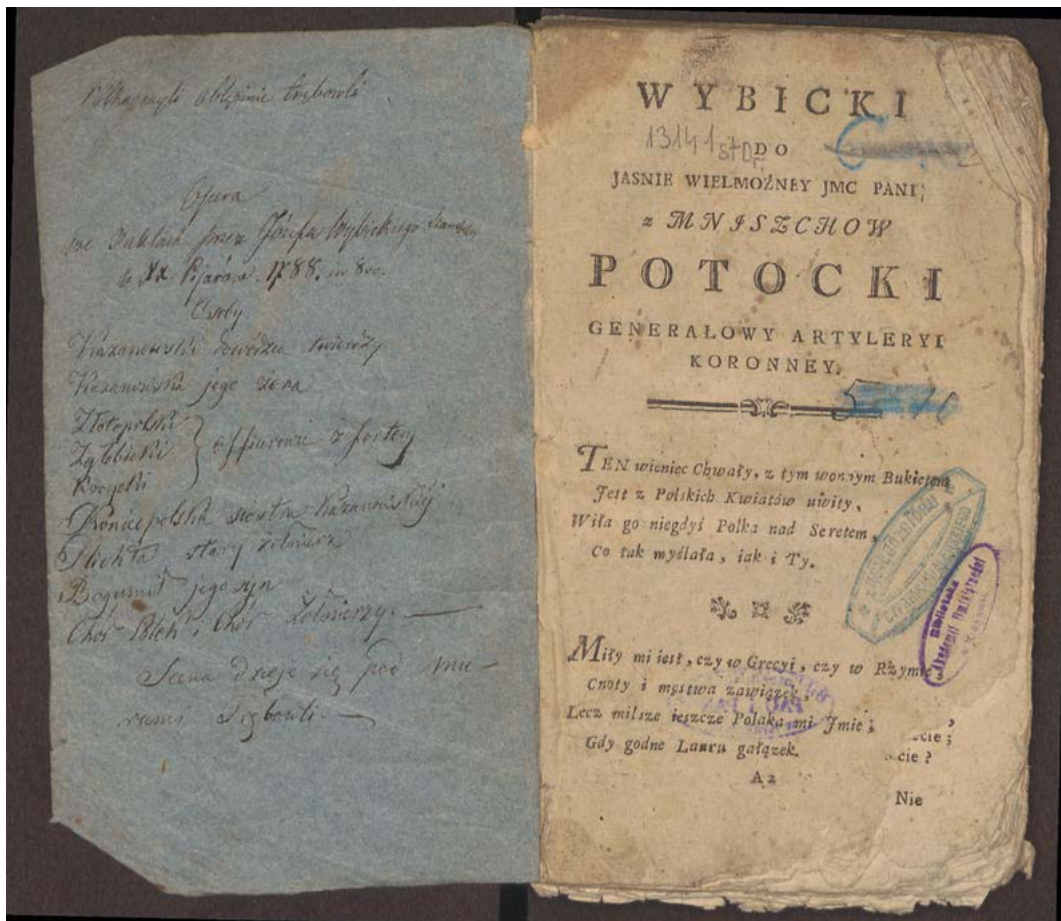 Polka czyli oblężenie trębowli
Opera
we 2 aktach przez Józefa Wybickiego
u XX. Pijarów. 1788. in 8vo.
Osoby
Kazanowski dowódzca twierdzy
Kazanowska jego żona
Złotopolski
Zgłobicki
officerowie z fortecy
Koniecpolska siostra Kazanowskiej
stary żołnierz
Bogumił jego syn
Chór Polek i Chór Żołnierzy. —
Scena dzieje się pod mu-
rami Trębowli —
WYBICKI
13141 st.Dr.
DO
JASNIE WIELMOŻNEY JMC PANI,
z MNISZCHOW
POTOCKI
GENERAŁOWY ARTYLERYI
KORONNEY.
TEN wieniec Chwały, z tym wonnym Bukietem
Jest z Polskich Kwiatów uwity,
Wiła go niegdyś Polka nad Seretem,
Co tak myślała, iak i Ty.
Biblioteka
Akademii Umiejętności
Miły mi iest, czy w Grecyi, czy w Rzymie,
Cnoty i męstwa zawiązek,
Lecz milsze ieszcze Polaka mi Jmie;
Gdy godne Lauru gałązek.
A2
cie;
cie?
Nie